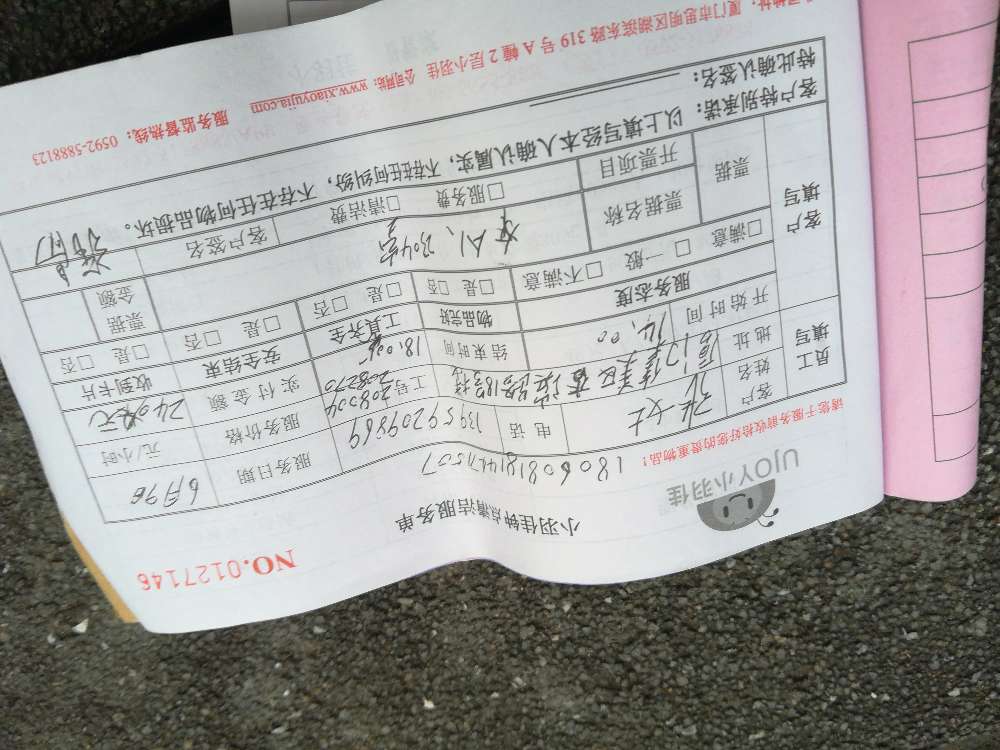 NO.0127146
小羽佳钟点清洁服务单
UJOY小羽佳
请您于服务前收拾好您的贵重物品!
员工填写
客户姓名
电话 13959209869
服务日期 6月9日
地址
工号 208004
服务价格 元/小时
开始时间 14:00
结束时间 18:00
实付金额 240元
客户填写
服务态度
物品完好
工具齐全
安全结束
收到卡片
□满意 □一般 □不满意
□是 □否
□是 □否
□是 □否
□是 □否
票据
票据名称
票据金额
开票项目
□服务费 □清洁费
客户签名
客户特别承诺:以上填写经本人确认属实,不存在任何纠纷,不存在任何物品损坏。
特此确认签名:
厦门市思明区湖滨东路319号A幢2层小羽佳 公司网站:www.xiaoyujia.com 服务监督热线:0592-5888123